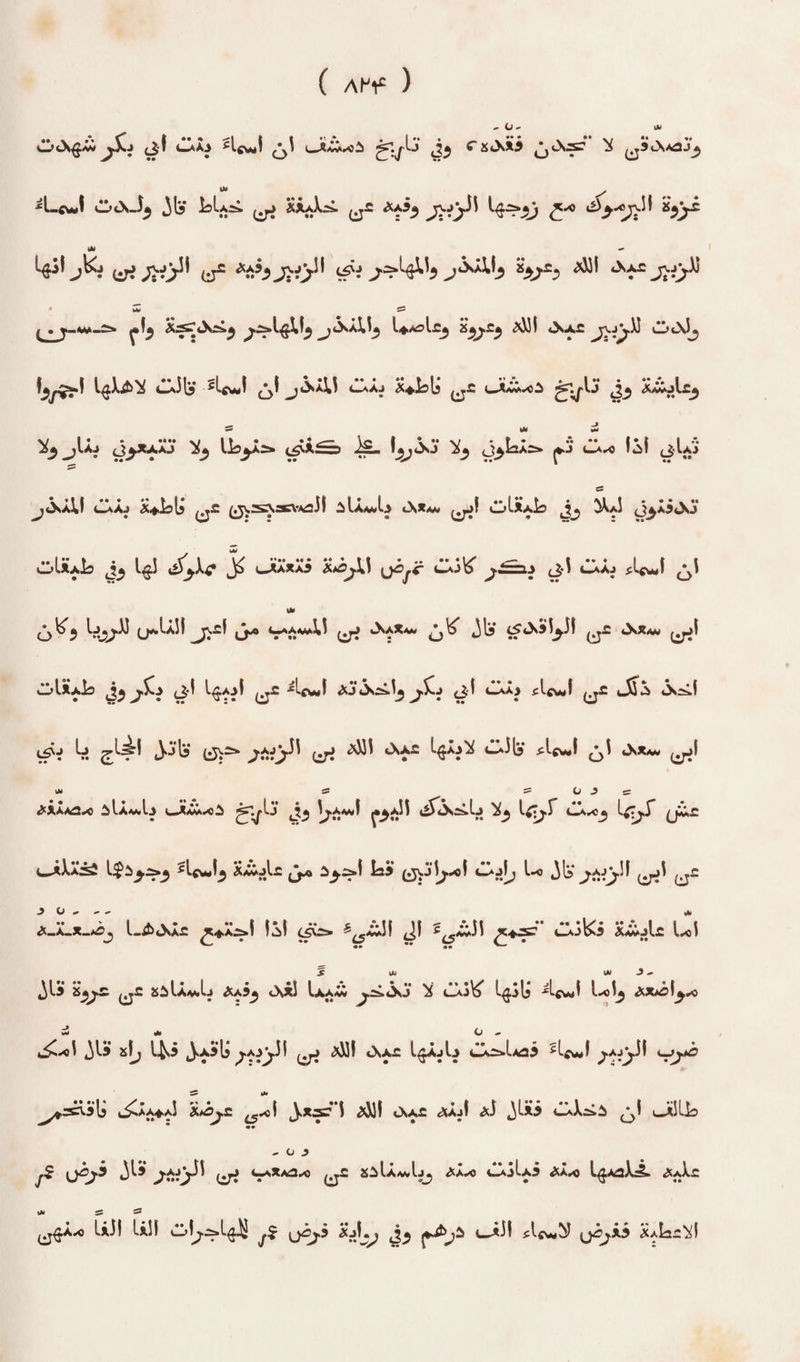 ( ٨٢۴ )
وتصدقى لا تجدن فَقْدَه وفى تاريخ دمشق ان اسماءَ بنت ابى بكر شهدت
غزوة اليرموك مع زوجها الزبير وفيه عن خليفة بن خيّاط قال ولدت اسماءُ
للزبير عبدَ الله وعروة والمنذر والمهاجر بنى الزبير وفيه عن الزبير بن بكّار انها
ولدت للزبير عبد الله وعروة وعاصمًا والمنذر والمهاجر وخديجة وامّ حسن
وعايشة وفى تاريخ دمشق عن فاطمة بنت المنذر ان اسماءَ قالت لاهلها اجمروا
ثيابى اذا متُّ ثم حنّطونى ولا تذروا على كفنى حنوطًا ولا تتبعونى بنارٍ ولا
تدفنونى ليلًا وفى طبقات ابن سعد باسناد الصحيحين عن فاطمة بنت المنذر
ان اسماء بنت ابى بكر كانت تمرض المرضة فتعتق كلّ مملوك لها وفى طبقات
ابن سعد عن الواقدى قال كان سعيد بن المسيّب من اعبر الناس للرويا وكان
اخذ ذلك عن اسماء بنت ابى بكر واخذته اسماءُ عن ابيها ابى بكر وفى طبقات
ابن سعد ان اسماء قالت لابنها عبد الله بن الزبير حين قاتل الحجاج يا بنى
عش كريمًا ومُتْ كريمًا ولا ياخذك اليوم اسيرًا وفى تاريخ دمشق باسناد مصنّفه
عن ابن الزبير قال ما رايت امراتين قط اجود من عايشة واسماءَ وجودها مختلف
امّا عايشة فكانت تجمع الشىءَ الى الشىء حتى اذا اجتمع عندها وضَعَتْهُ
مواضعَهُ وامّا اسماءُ فانها كانت لا تدّخر شيئًا لغد وفيه باسناده عن عروة قال
ضرب الزبير اسماءَ فصاحَتْ بابنها عبد الله بن الزبير فاقبل فلمّا راه قال امّكَ
طالق ان دخلت فقال له ابنه عبد الله اتجعل امّى عرضةً ليمينك فاقتحم
عليه فخلصها منه فبانت منه وباسناده عن مُصْعَب بن الزبير قال فرض عمر
الاعطية ففرض لاسماء الف درهم وفى رواية فرض عمر للمهاجرات الفًا الفًا منهنّ